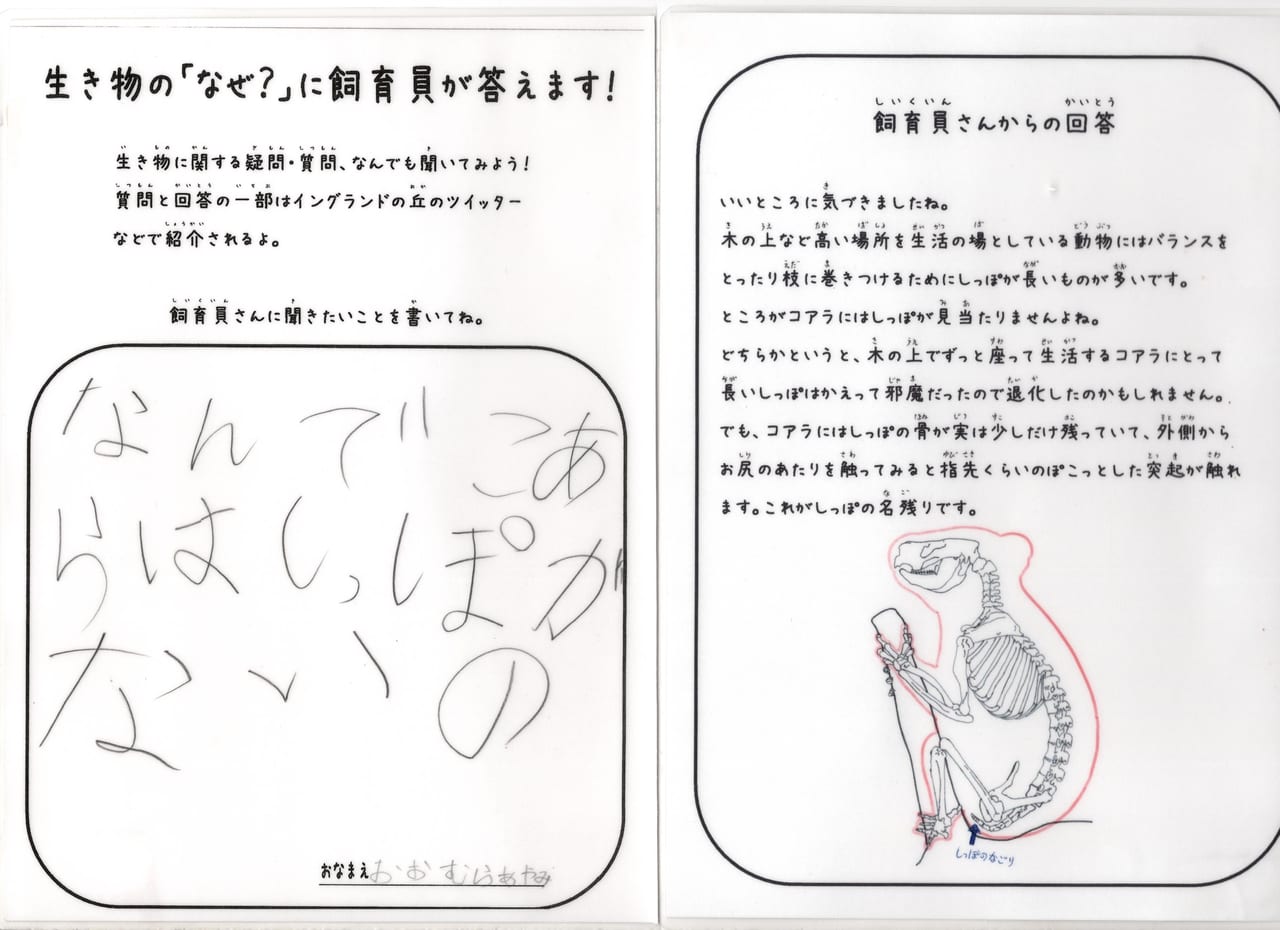 生き物の「なぜ?」に飼育員が答えます!
生き物に関する疑問・質問、なんでも聞いてみよう!
質問と回答の一部はイングランドの丘のツイッター
などで紹介されるよ。
飼育員さんに聞きたいことを書いてね。
なんでこあ
らはしっぽが
ないの
おなまえ おおむらあやみ
飼育員さんからの回答
いいところに気づきましたね。
木の上など高い場所を生活の場としている動物にはバランスを
とったり枝に巻きつけるためにしっぽが長いものが多いです。
ところがコアラにはしっぽが見当たりませんよね。
どちらかというと、木の上でずっと座って生活するコアラにとって
長いしっぽはかえって邪魔だったので退化したのかもしれません。
でも、コアラにはしっぽの骨が実は少しだけ残っていて、外側から
お尻のあたりを触ってみると指先くらいのぽこっとした突起が触れ
ます。これがしっぽの名残りです。
しっぽのなごり